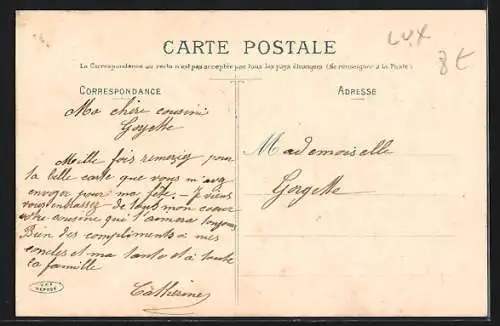 LUX
8€
CARTE POSTALE
La Correspondance au recto n'est pas acceptée par tous les pays étrangers (Se renseigner à la Poste)
CORRESPONDANCE
ADRESSE
Ma chère cousine
Gogette
Mademoiselle
Gogette
Meille fois remerzig pour
la belle carte que vous m'avez
envoyez pour ma fête. - Je viens
vous embrassez de tous mon coeur
votre cousine qui t'aimera toujours
Bien des compliments à mes
oncles et ma tante et à toute
la famille
Cathérine
DÉPOSÉ